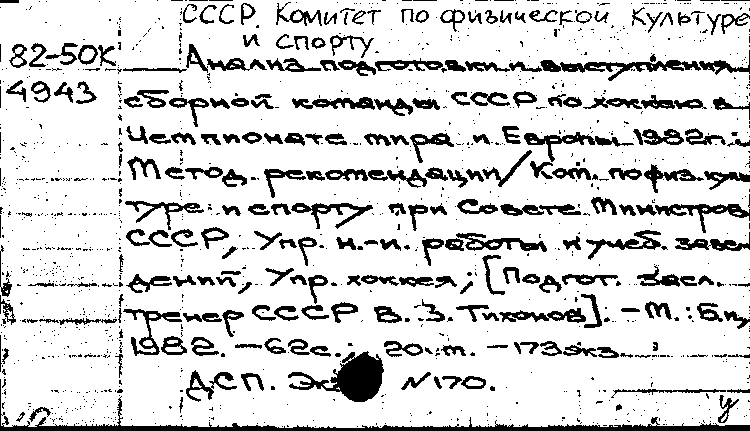 СССР. Комитет по физической культуре
и спорту.
82-50К
4943
Анализ подготовки и выступления
сборной команды СССР по хоккею в
Чемпионате мира и Европы 1982г.:
Метод. рекомендации/Ком. по физ. куль
туре и спорту при Совете Министров
СССР, Упр. н.-и. работы и учеб. заве
дений, Упр. хоккея; [Подгот. засл.
тренер СССР В. З. Тихонов]. - М.: Б.и.,
1982. - 62с.; 20 см. - 173экз.
ДСП. Экз N170.
у